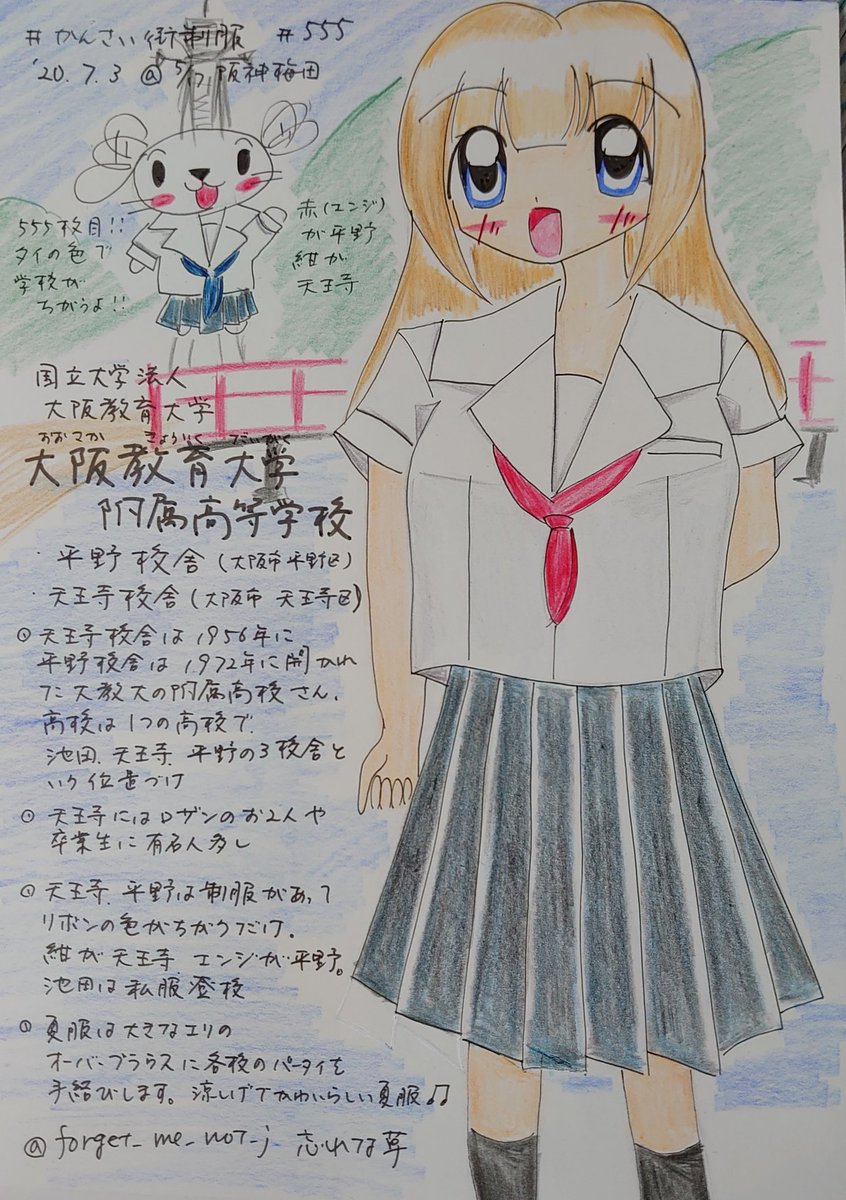 #かんさい街制服 #555
'20.7.3 @ 5/17 阪神梅田
555枚目!!
タイの色で
学校が
ちがうよ!!
赤(エンジ)
が平野
紺が
天王寺
国立大学法人
大阪教育大学
おおさか きょういく だいがく
大阪教育大学
附属高等学校
・平野校舎(大阪市平野区)
・天王寺校舎(大阪市天王寺区)
天王寺校舎は1956年に
平野校舎は1972年に開かれ
た大教大の附属高校さん、
高校は1つの高校で
池田、天王寺、平野の3校舎と
いう位置づけ
天王寺にはロザンのお2人や
卒業生に有名人多し
天王寺、平野は制服があって
リボンの色がちがうだけ。
紺が天王寺 エンジが平野。
池田は私服登校
夏服は大きなエリの
オーバーブラウスに各校のパータイを
手結びします。涼しげでかわいらしい夏服♫
@forget_me_not_j 忘れな草